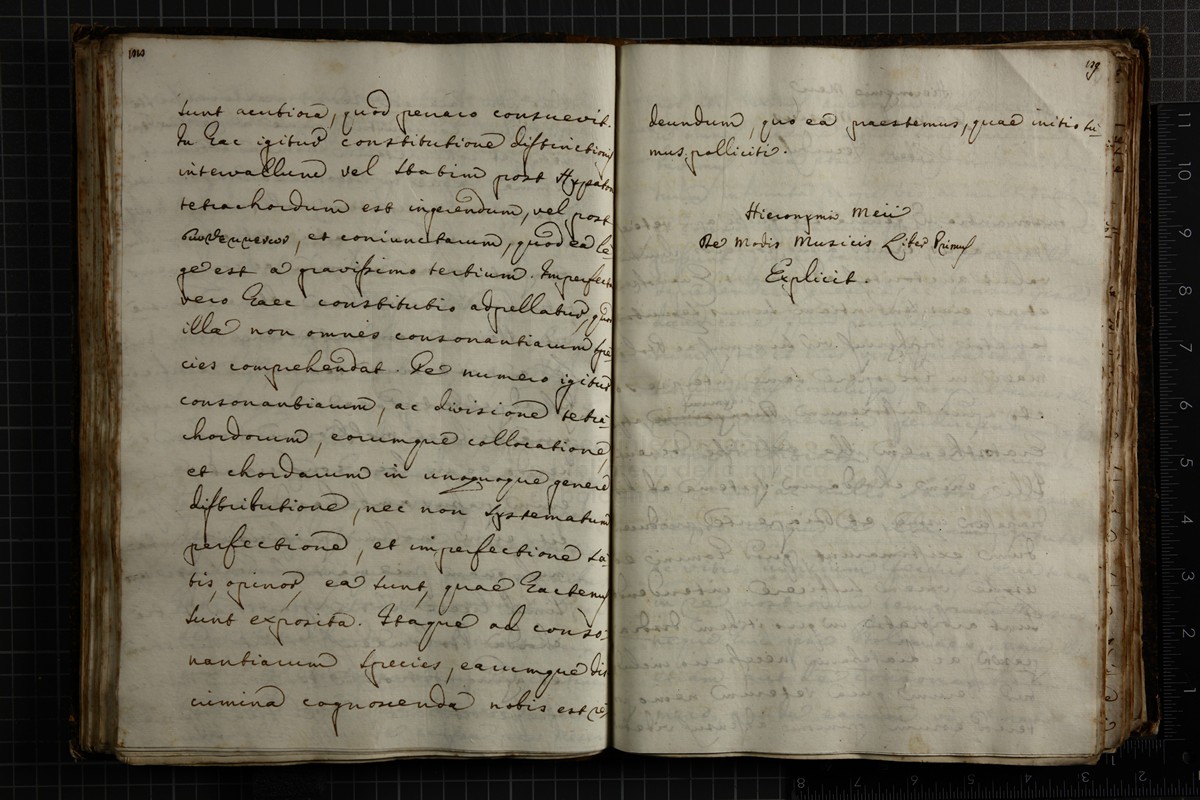 sunt acutiora, quod penaro consuevit.
In hac igitur constitutione distinctionis
intervallum vel statim post Hypaton
tetrachordum est inserendum, vel post
et coniunctarum, quod ea le
ge est a gravissimo tertium. Imperfecta
vero haec constitutio adpellatur, quod
illa non omnes consonantiarum spe
cies comprehendat. De numero igitur
consonantiarum, ac divisione tetra
chordorum, eorumque collocatione,
et chordarum in unoquoque genere
distributione, nec non systematum
perfectione, et imperfectione sa
tis, opinor, ea sunt, quae hactenus
sunt exposita. Itaque ad conso
nantiarum species, earumque dis
crimina cognoscenda nobis est re
139
deundum, quo ea praestemus, quae initio su
mus polliciti.
Hieronymi Meii
De Modis Musicis Liber Primus
Explicit.